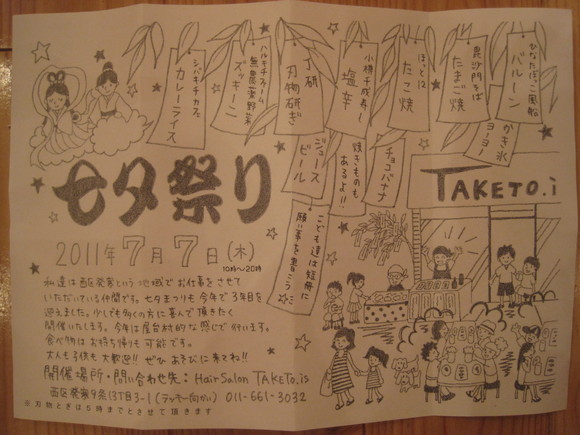 ひなたぼっこ風船
バルーン
かき氷
ヨーヨー
毘沙門そば
たまご焼
ほっと12
たこ焼
小樽千成寿し
塩辛
丁研
刃物研ぎ
ハルキチファーム
無農薬野菜
ズッキーニ
シバキチカフェ
カレーライス
チョコバナナ
焼きものも
あるよ!!
ジュース
ビール
こども達は短冊に
願い事を書こう
七夕祭り
TAKETO.i
2011年7月7日(木)
10時〜20時
私達は西区発寒という地域でお仕事をさせて
いただいている仲間です。七夕まつりも今年で3年目を
迎えました。少しでも多くの方に喜んで頂きたく
開催いたします。今年は屋台村的な感じで行います。
食べ物はお持ち帰りも可能です。
大人も子供も大歓迎!! ぜひあそびに来てね!!
開催場所・問い合わせ先:Hair Salon TAKETO.is
西区発寒9条13丁目3-1(テッキー向かい) 011-661-3032
※刃物とぎは5時までとさせて頂きます